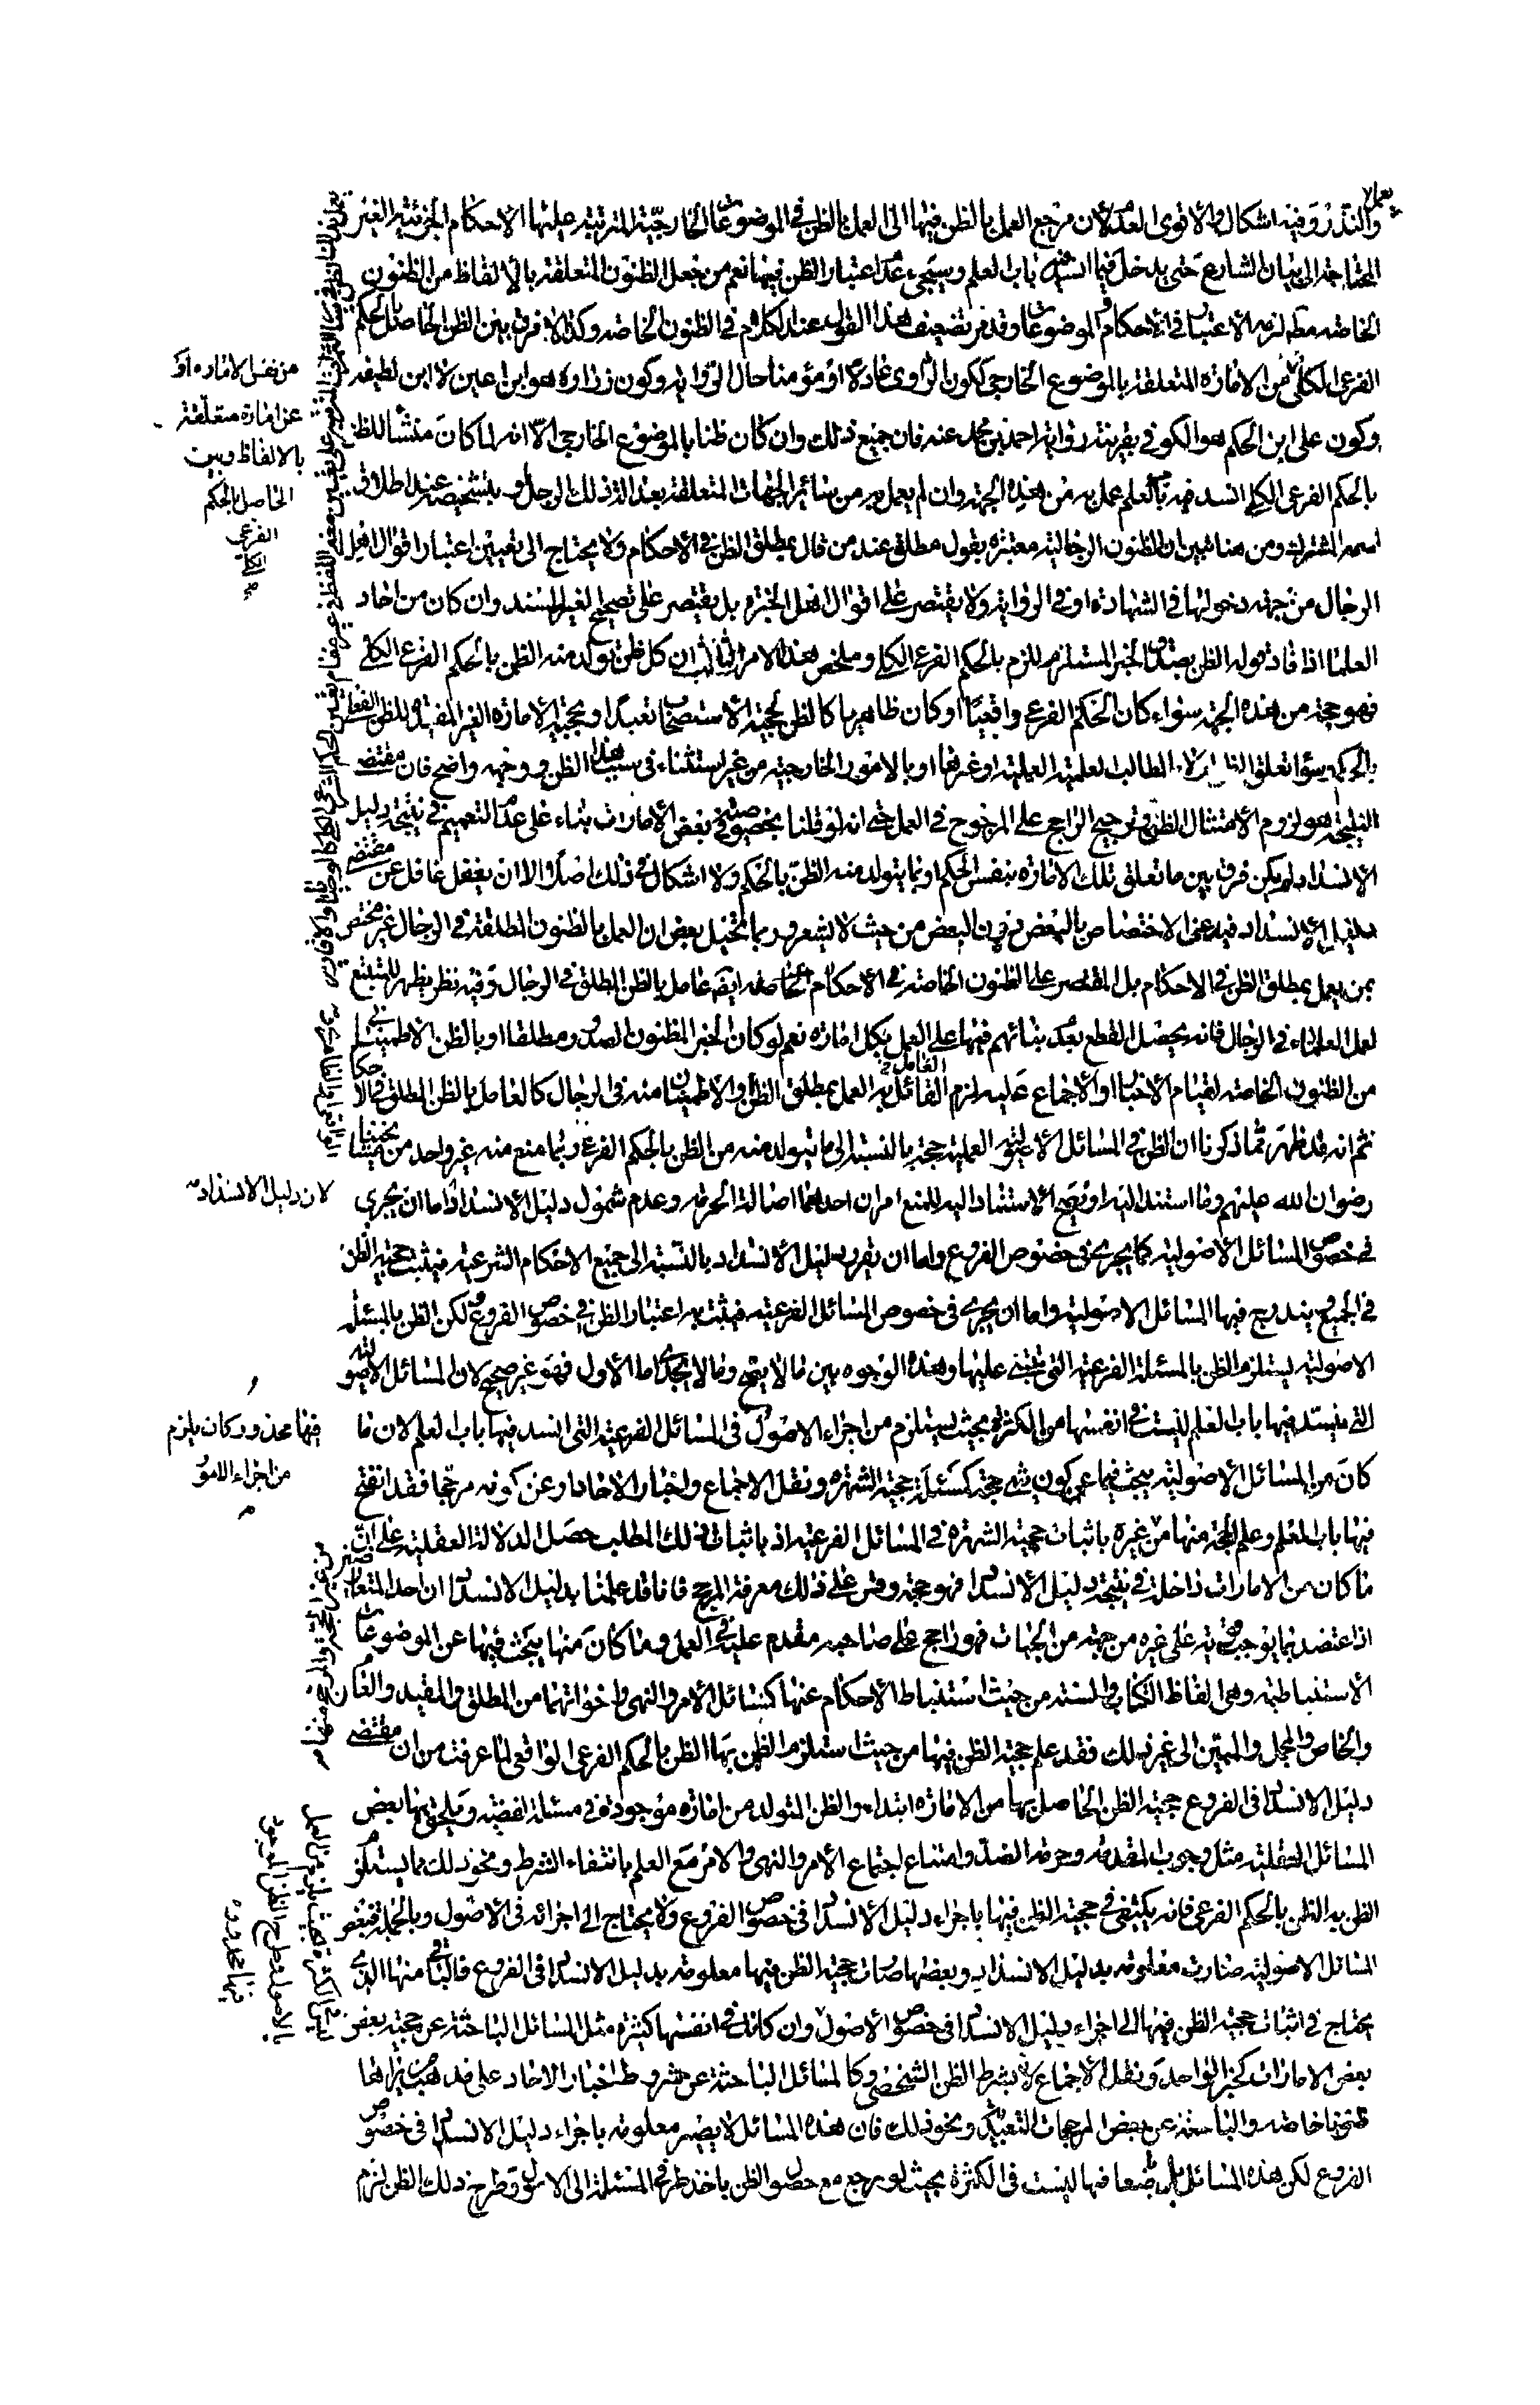 والنذر وفيه اشكال والأقوى العدم لأن مرجع العمل بالظن فيها الى العمل بالظن في الموضوعات الخارجية المترتبة عليها الأحكام الجزئية الغير
المحتاجة الى بيان الشارع حتى يدخل فيما انسد فيه باب العلم وسيجيء عدم اعتبار الظن فيها نعم من جعل الظنون المتعلقة بالألفاظ من الظنون
الخاصة مطلقا لزمه الاعتبار في الأحكام والموضوعات وقد مر تضعيف هذا القول عند الكلام في الظنون الخاصة وكذا لا فرق بين الظن الحاصل بالحكم
الفرعي الكلي من الامارة المتعلقة بالموضوع الخارجي ككون الراوي عادلا او مؤمنا حال الرواية وكون زرارة هو ابن اعين لا ابن لطيفة
وكون علي بن الحكم هو الكوفي بقرينة رواية احمد بن محمد عنه فان جميع ذلك وان كان ظنا بالموضوع الخارجي الا انه لما كان منشأ للظن
بالحكم الفرعي الكلي الذي انسد فيه باب العلم عمل به من هذه الجهة وان لم يعمل به من سائر الجهات المتعلقة بعدالة ذلك الرجل او بتشخيصه عند اطلاق
اسمه المشترك ومن هنا تبين ان الظنون الرجالية معتبرة بقول مطلق عند من قال بمطلق الظن في الأحكام ولا يحتاج الى تعيين اعتبار اقوال اهل
الرجال من جهة دخولها في الشهادة او في الرواية ولا يقتصر على اقوال اهل الخبرة بل يقتصر على تصحيح الغير للسند وان كان من آحاد
العلماء اذا افاد قوله الظن بصدق الخبر المستلزم للظن بالحكم الفرعي الكلي وملخص هذا الامر الثالث ان كل ظن تولد منه الظن بالحكم الفرعي الكلي
فهو حجة من هذه الجهة سواء كان الحكم الفرعي واقعيا او كان ظاهريا كالظن بحجية الاستصحاب تعبدا وبحجية الامارة الغير المفيدة للظن الفعلي
بالحكم وسواء تعلق الظن اولا بالمطالب العلمية او العملية او غيرها او بالامور الخارجية من غير استثناء في سبب هذا الظن ووجهه واضح فان مقتضى
النتيجة هو لزوم الامتثال الظني وترجيح الراجح على المرجوح في العمل حتى انه لو قلنا بخصوصية في بعض الأمارات بناء على عدم التعميم في نتيجة دليل
الانسداد لم يكن فرق بين ما تعلق تلك الامارة بنفس الحكم او بما يتولد منه الظن بالحكم ولا اشكال في ذلك اصلا الا ان يغفل غافل عن مقتضى
دليل الانسداد فيدعي الاختصاص بالبعض دون البعض من حيث لا يشعر وربما تخيل بعض ان العمل بالظنون المطلقة في الرجال غير مختص
بمن يعمل بمطلق الظن في الاحكام بل المقتصر على الظنون الخاصة في الأحكام ايضا عامل بالظن المطلق في الرجال وفيه نظر يظهر للمتتبع
لعمل العلماء في الرجال فانه يحصل القطع بعدم بنائهم فيها على العمل بكل امارة نعم لو كان الخبر المظنون الصدور مطلقا او بالظن الاطميناني
من الظنون الخاصة لقيام الأخبار او الإجماع عليه لزم القائل به العمل بمطلق الظن او الاطميناني منه في الرجال كالعامل بالظن المطلق في الأحكام
ثم انه قد ظهر مما ذكرنا ان الظن في المسائل الأصولية العملية حجة بالنسبة الى ما يتولد منه من الظن بالحكم الفرعي وربما منع منه غير واحد من مشايخنا
رضوان الله عليهم وما استند اليه او يصح الاستناد اليه للمنع امران احدهما اصالة الحرمة وعدم شمول دليل الانسداد اما ان يجري
في خصوص المسائل الأصولية كما يجري في خصوص الفروع واما ان يقرر دليل الانسداد بالنسبة الى جميع الاحكام الشرعية فيثبت حجية الظن
في الجميع ويندرج فيها المسائل الاصولية واما ان يجري في خصوص المسائل الفرعية فيثبت به اعتبار الظن في خصوص الفروع لكن الظن بالمسئلة
الاصولية يستلزم الظن بالمسئلة الفرعية التي تبتني عليها وهذه الوجوه بين ما لا يصح وما لا يجدي اما الأول فهو غير صحيح لان المسائل الاصولية
التي ينسد فيها باب العلم ليست في انفسها من الكثرة بحيث يستلزم من اجراء الاصول في المسائل الفرعية التي انسد فيها باب العلم لان ما
كان من المسائل الأصولية يبحث فيها عن كون شيء حجة كمسئلة حجية الشهرة ونقل الاجماع واخبار الآحاد او عن كونه مرجحا فقد انفتح
فيها باب العلم وعلم الحجة منها من غيره باثبات حجية الشهرة في المسائل الفرعية اذ باثبات ذلك المطلب حصل الدلالة العقلية على ان
ما كان من الامارات داخلة في نتيجة دليل الانسداد فهو حجة وقس على ذلك معرفة المرجح فانا قد علمنا بدليل الانسداد ان احد المتعارضين
اذا اعتضد بما يوجب قوته على غيره من جهة من الجهات فهو راجح على صاحبه مقدم عليه في العمل وما كان منها يبحث فيها عن الموضوعات
الاستنباطية وهي الفاظ الكتاب والسنة من حيث استنباط الأحكام عنها كمسائل الأمر والنهي واخواتهما من المطلق والمقيد والعام
والخاص والمجمل والمبين الى غير ذلك فقد علم حجية الظن فيها من حيث استلزام الظن بها الظن بالحكم الفرعي الواقعي لما عرفت من ان مقتضى
دليل الانسداد في الفروع حجية الظن الحاصل بها من الامارة ابتداء والظن المتولد من امارة موجودة في مسئلة لفظية ويلحق بها بعض
المسائل العقلية مثل وجوب المقدمة وحرمة الضد وامتناع اجتماع الأمر والنهي والامر مع العلم بانتفاء الشرط ونحو ذلك مما يستلزم
الظن به الظن بالحكم الفرعي فانه يكتفى في حجية الظن فيها باجراء دليل الانسداد في خصوص الفروع ولا يحتاج الى اجرائه في الاصول وبالجملة فبعض
المسائل الاصولية صارت معلومة بدليل الانسداد وبعضها صارت حجية الظن فيها معلومة بدليل الانسداد في الفروع فالباقي منها الذي
يحتاج في اثبات حجية الظن فيها الى اجراء دليل الانسداد في خصوص الأصول وان كانت في انفسها كثيرة مثل المسائل الباحثة عن حجية بعض
بعض الامارات كخبر الواحد ونقل الاجماع لا بشرط الظن الشخصي وكالمسائل الباحثة عن شروط اخبار الآحاد على مذهب من يراها
ظنونا خاصة والباحثة عن بعض المرجحات التعبدية ونحو ذلك فان هذه المسائل لا يصير معلومة باجراء دليل الانسداد في خصوص
الفروع لكن هذه المسائل بل واضعافها ليست في الكثرة بحيث لو رجع مع حصول الظن باحد طرفي المسئلة الى الاصول وطرح ذلك الظن لزم
من نفس الامارة او
عن امارة متعلقة
بالالفاظ وبين
الحاصل بالحكم
الفرعي
الكلي
لان دليل الانسداد
فيها محذور وكان يلزم
من اجراء الاصول